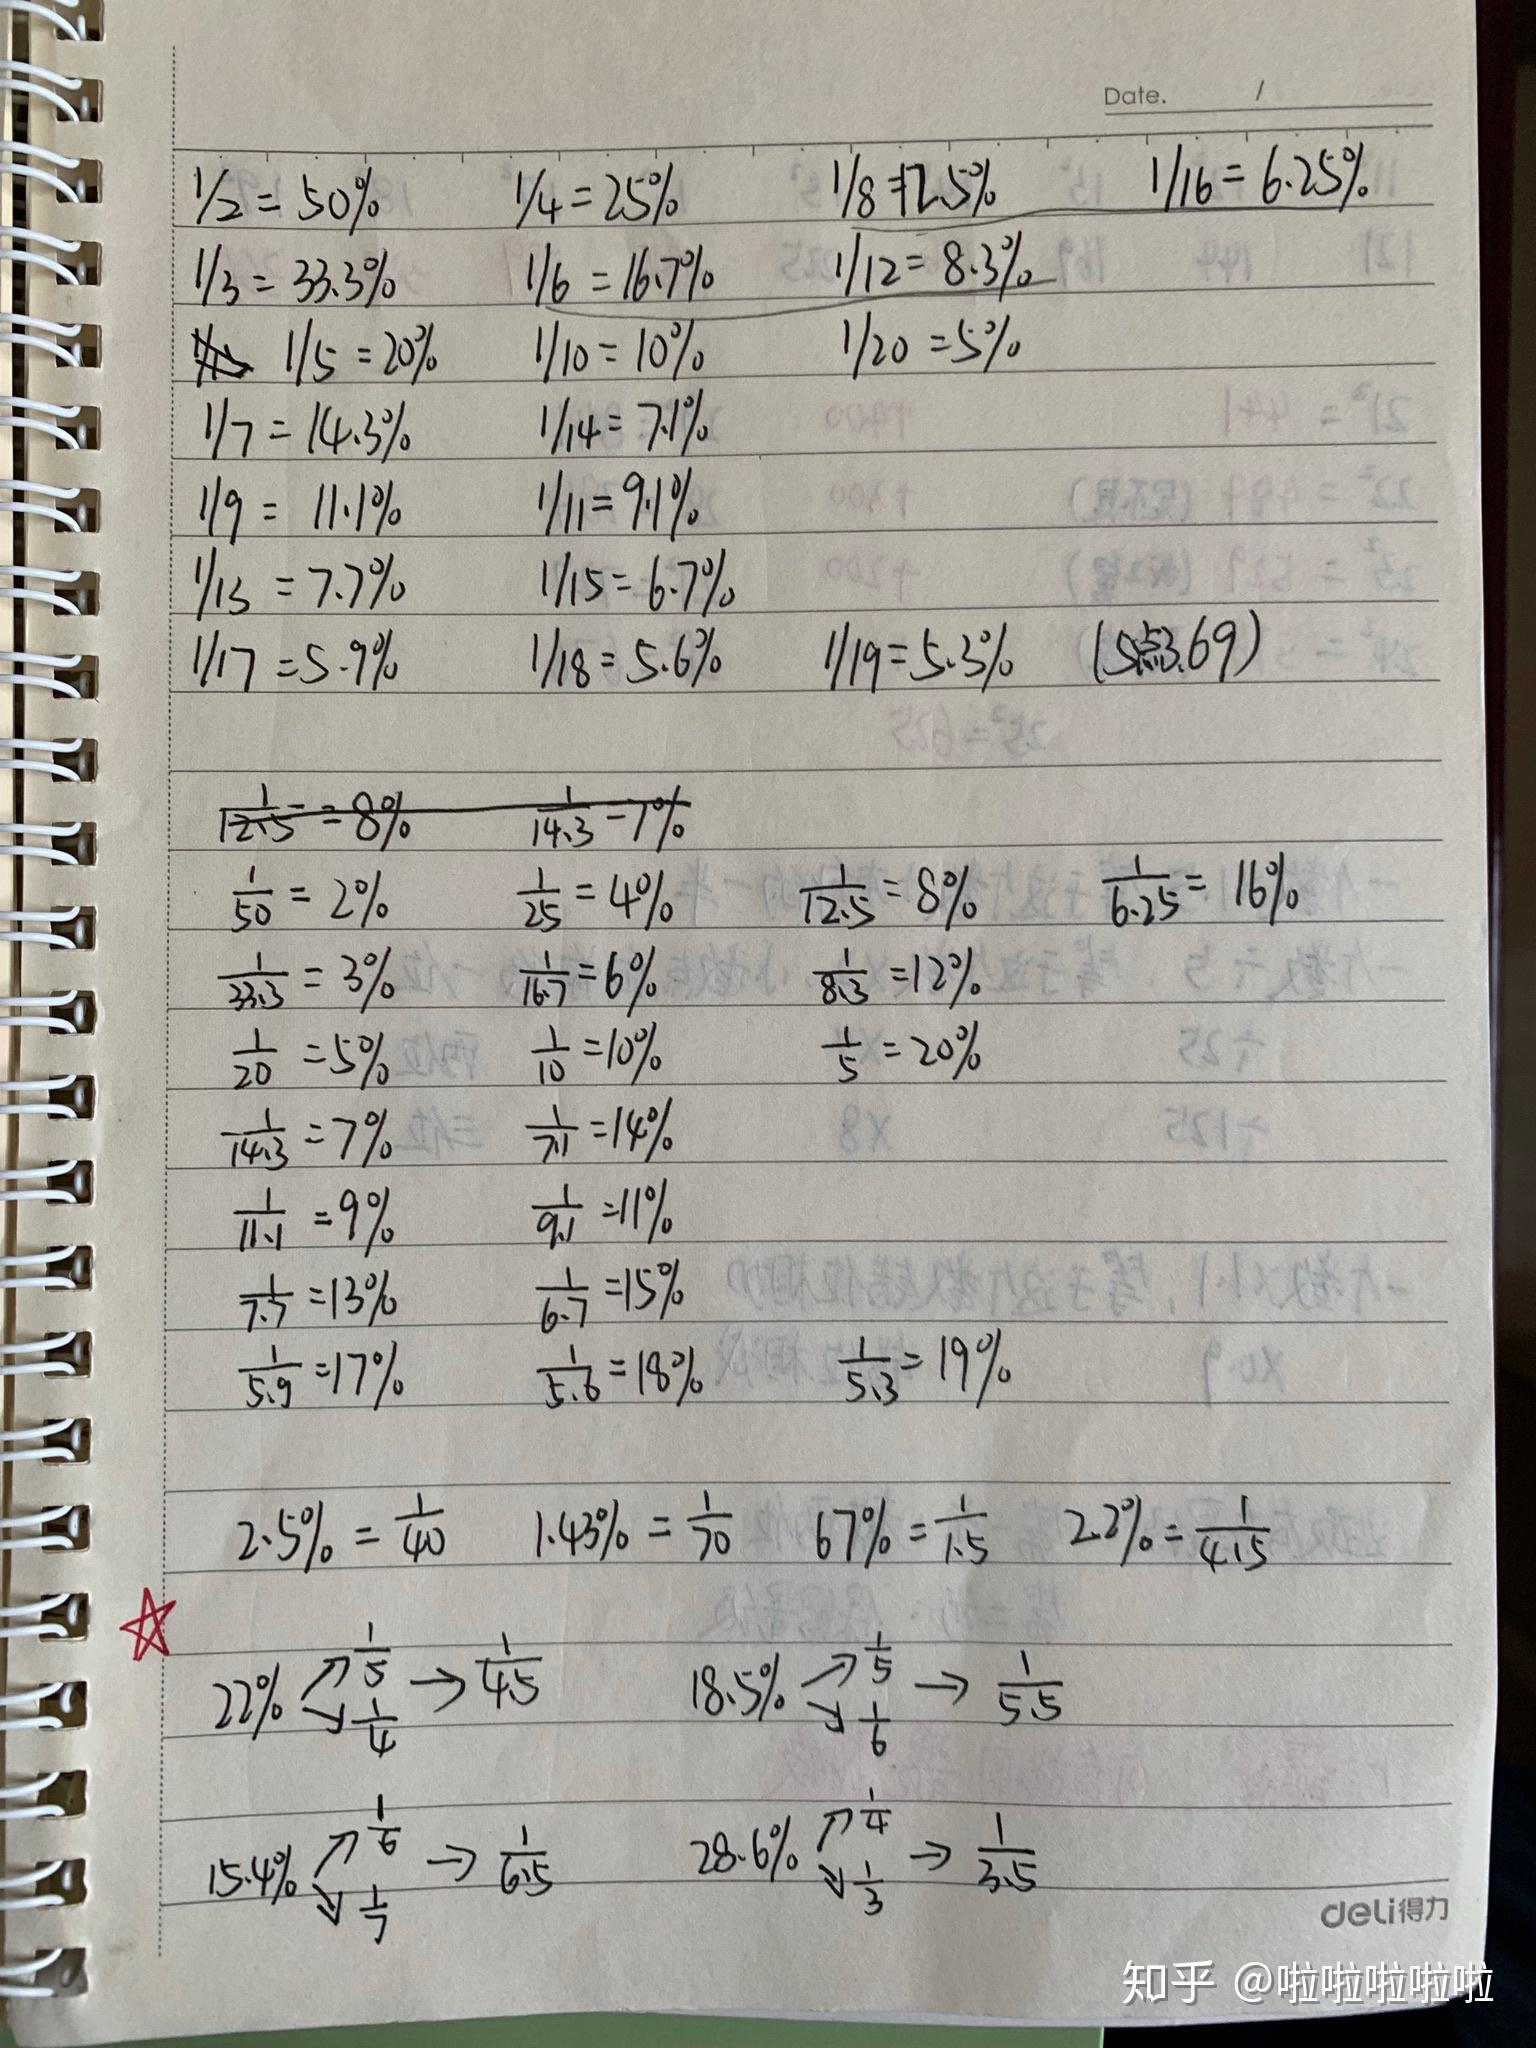 Date. /
1/2 = 50% 1/4 = 25% 1/8 = 12.5% 1/16 = 6.25%
1/3 = 33.3% 1/6 = 16.7% 1/12 = 8.3%
1/5 = 20% 1/10 = 10% 1/20 = 5%
1/7 = 14.3% 1/14 = 7.1%
1/9 = 11.1% 1/11 = 9.1%
1/13 = 7.7% 1/15 = 6.7%
1/17 = 5.9% 1/18 = 5.6% 1/19 = 5.3% (5点3.69)
1/12.5 = 8% 1/14.3 = 7%
1/50 = 2% 1/25 = 4% 1/12.5 = 8% 1/6.25 = 16%
1/33.3 = 3% 1/16.7 = 6% 1/8.3 = 12%
1/20 = 5% 1/10 = 10% 1/5 = 20%
1/14.3 = 7% 1/7.1 = 14%
1/11.1 = 9% 1/9.1 = 11%
1/7.7 = 13% 1/6.7 = 15%
1/5.9 = 17% 1/5.6 = 18% 1/5.3 = 19%
2.5% = 1/40 1.43% = 1/70 67% = 1/1.5 2.2% = 1/45
22% ↗ 1/5 ↘ 1/4 → 1/4.5 18.5% ↗ 1/5 ↘ 1/6 → 1/5.5
15.4% ↗ 1/6 ↘ 1/7 → 1/6.5 28.6% ↗ 1/4 ↘ 1/3 → 1/3.5
deli得力
知乎 @啦啦啦啦啦